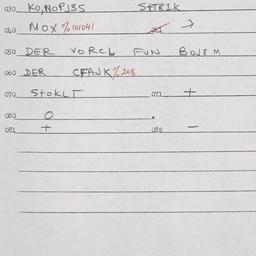 030 KO,NOP135 S+TRIK
040 MOX % 101041 →
050 DER VORCL FUN BOJEM
060 DER CFAJK % 208
070 StOKLT 071 +
080 O .
081 + 082 —